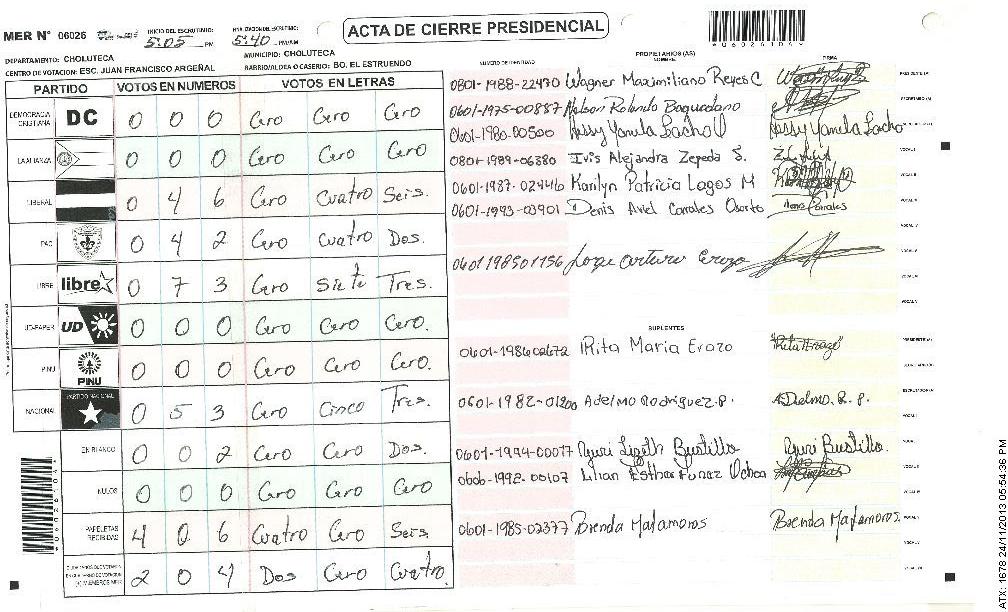 ACTA DE CIERRE PRESIDENCIAL
MER N° 06026
INICIO DEL ESCRUTINIO: 5:05 PM
5:40 PM/AM
*06026104*
DEPARTAMENTO: CHOLUTECA
MUNICIPIO: CHOLUTECA
CENTRO DE VOTACION: ESC. JUAN FRANCISCO ARGEÑAL
BARRIO/ALDEA O CASERIO: BO. EL ESTRUENDO
PARTIDO VOTOS EN NUMEROS VOTOS EN LETRAS
DEMOCRACIA CRISTIANA DC 0 0 0 Cero Cero Cero
ALIANZA 0 0 0 Cero Cero Cero
LIBERAL 0 4 6 Cero Cuatro Seis.
PAC 0 4 2 Cero Cuatro Dos.
LIBRE libre 0 7 3 Cero Siete Tres.
UD-FAPER UD 0 0 0 Cero Cero Cero.
PINU PINU 0 0 0 Cero Cero Cero.
NACIONAL PARTIDO NACIONAL 0 5 3 Cero Cinco Tres.
EN BLANCO 0 0 2 Cero Cero Dos.
NULOS 0 0 0 Cero Cero Cero
PAPELETAS RECIBIDAS 4 0 6 Cuatro Cero Seis.
2 0 4 Dos Cero Cuatro.
NUMERO DE IDENTIDAD
PROPIETARIOS (AS)
NOMBRE
FIRMA
0801-1988-22470 Wagner Maximiliano Reyes C PRESIDENTE (A)
0601-1975-00887 Nelson Rolando Baquedano SECRETARIO (A)
0601-1980-00500
0801-1989-06380 Ivis Alejandra Zepeda S. VOCAL I
0601-1987-02446 Karilyn Patricia Lagos M VOCAL II
0601-1993-03901 Denis Ariel Corrales Osorto
0601198501156 Jorge Arturo
SUPLENTES
0601-198602672 Rita Maria Erazo Rita Erazo PRESIDENTE (A)
0601-1982-01200 Adelmo Rodriguez.P. Adelmo. R. P.
0601-1994-00077 Yguri Lizeth Bustillo Yguri Bustillo.
0606-1992-00107 Lilian Esthar Funez Ochoa
0601-1985-02377 Brenda Matamoros Brenda Matamoros.
ATX: 1678 24/11/2013 05:54:36 PM